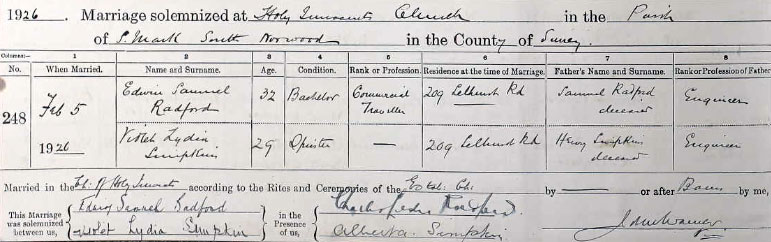 1926. Marriage solemnized at Holy Innocents Church in the Parish
of S. Mark South Norwood in the County of Surrey.
Columns:— 1 2 3 4 5 6 7 8
No. When Married. Name and Surname. Age. Condition. Rank or Profession. Residence at the time of Marriage. Father's Name and Surname. Rank or Profession of Father
248 Feb 5 1926 Edwin Samuel Radford 32 Bachelor Commercial Traveller 209 Selhurst Rd Samuel Radford deceased Engineer
Violet Lydia Simpkin 29 Spinster — 209 Selhurst Rd Henry Simpkin deceased Engineer
Married in the Ch. of Holy Innocents according to the Rites and Ceremonies of the Estd. Ch. by — or after Banns by me,
This Marriage was solemnized between us, Edwin Samuel Radford Violet Lydia Simpkin in the Presence of us, Radford Alberta Simpkin